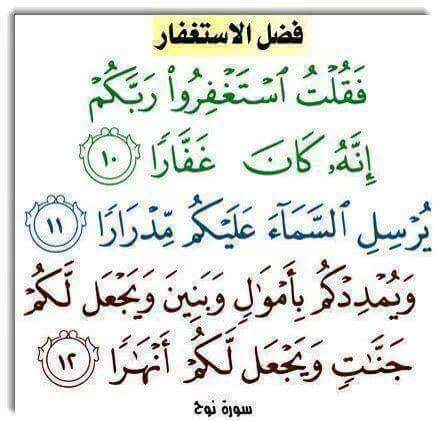 فضل الاستغفار
فَقُلْتُ ٱسْتَغْفِرُوا۟ رَبَّكُمْ
إِنَّهُۥ كَانَ غَفَّارًا ١٠
يُرْسِلِ ٱلسَّمَآءَ عَلَيْكُم مِّدْرَارًا ١١
وَيُمْدِدْكُم بِأَمْوَٰلٍ وَبَنِينَ وَيَجْعَل لَّكُمْ
جَنَّٰتٍ وَيَجْعَل لَّكُمْ أَنْهَٰرًا ١٢
سورة نوح